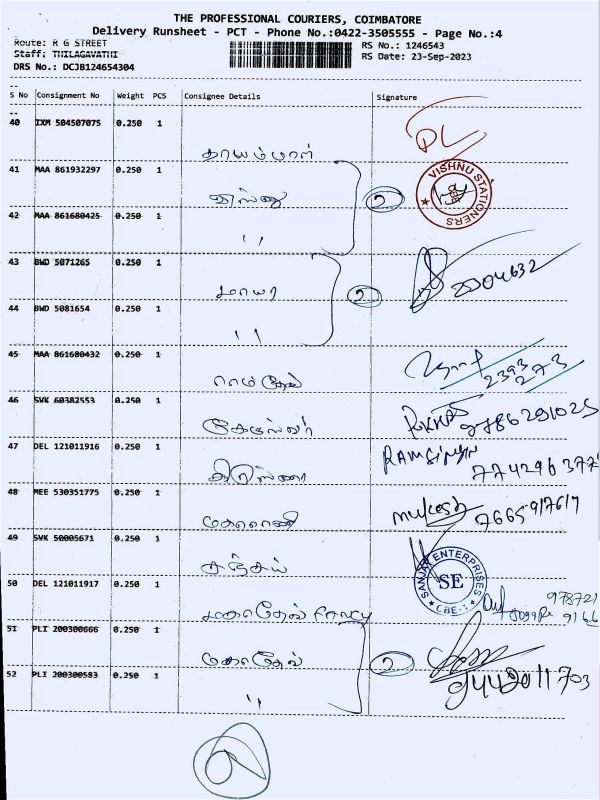 THE PROFESSIONAL COURIERS, COIMBATORE
Delivery Runsheet - PCT - Phone No.:0422-3505555 - Page No.:4
Route: R G STREET
RS No.: 1246543
Staff: THILAGAVATHI
RS Date: 23-Sep-2023
DRS No.: DCJB124654304
S No Consignment No Weight PCS Consignee Details Signature
40 IXM 504507075 0.250 1
தாயம்மாள்
41 MAA 861932297 0.250 1
விஸ்ணு 2 VISHNU STATIONERS
42 MAA 861680425 0.250 1
''
43 BWD 5071265 0.250 1
மாயா 2 2004632
44 BWD 5081654 0.250 1
''
45 MAA 861680432 0.250 1
ராம்தேவ் 2393 273
46 SVK 60382553 0.250 1
9786291025
47 DEL 121011916 0.250 1
கிருஸ்ணா RAMSINGH 77429 6377
48 MEE 530351775 0.250 1
மகாராணி mukesh 7665917617
49 SVK 50005671 0.250 1
சஞ்சய் SANJAY ENTERPRISES SE CBE-1
50 DEL 121011917 0.250 1
மகாதேவ் Fancy 978721 9166
51 PLI 200300666 0.250 1
மகாதேவ் 2
52 PLI 200300583 0.250 1
'' 9442011703